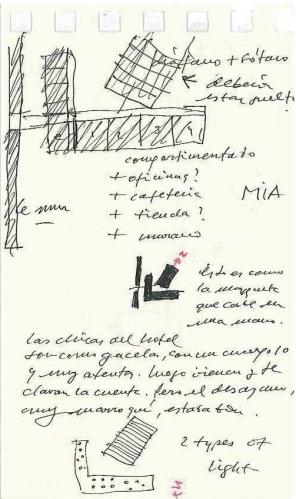 + sótano
debería
estar suelto
1 2 3 4
compartimentado
+ oficinas?
+ cafetería
+ tienda?
+
MIA
le mur
N
Esto es como
la maqueta
que cabe en
una mano.
Las chicas del hotel
son como gacela, con un cuerpo lo
y muy atentas. Luego vienen y te
clavan la cuenta. Pero el desayuno,
muy marroquí, estaba bien.
2 types of
light
N